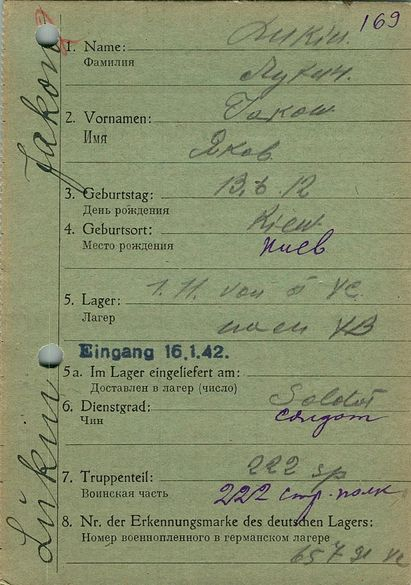 169
1. Name: Lukin.
Фамилия
Лукин.
2. Vornamen: Jakow
Имя
Яков
3. Geburtstag: 13.6.12
День рождения
4. Geburtsort: Kiew
Место рождения Киев
5. Lager: 1.11. von
Лагерь
nach VB
Eingang 16.1.42.
5a. Im Lager eingeliefert am:
Доставлен в лагерь (число)
6. Dienstgrad: Soldat
Чин солдат
7. Truppenteil: 222 sp
Воинская часть 222 стр. полк
8. Nr. der Erkennungsmarke des deutschen Lagers:
Номер военнопленного в германском лагере
Lukin Jakow